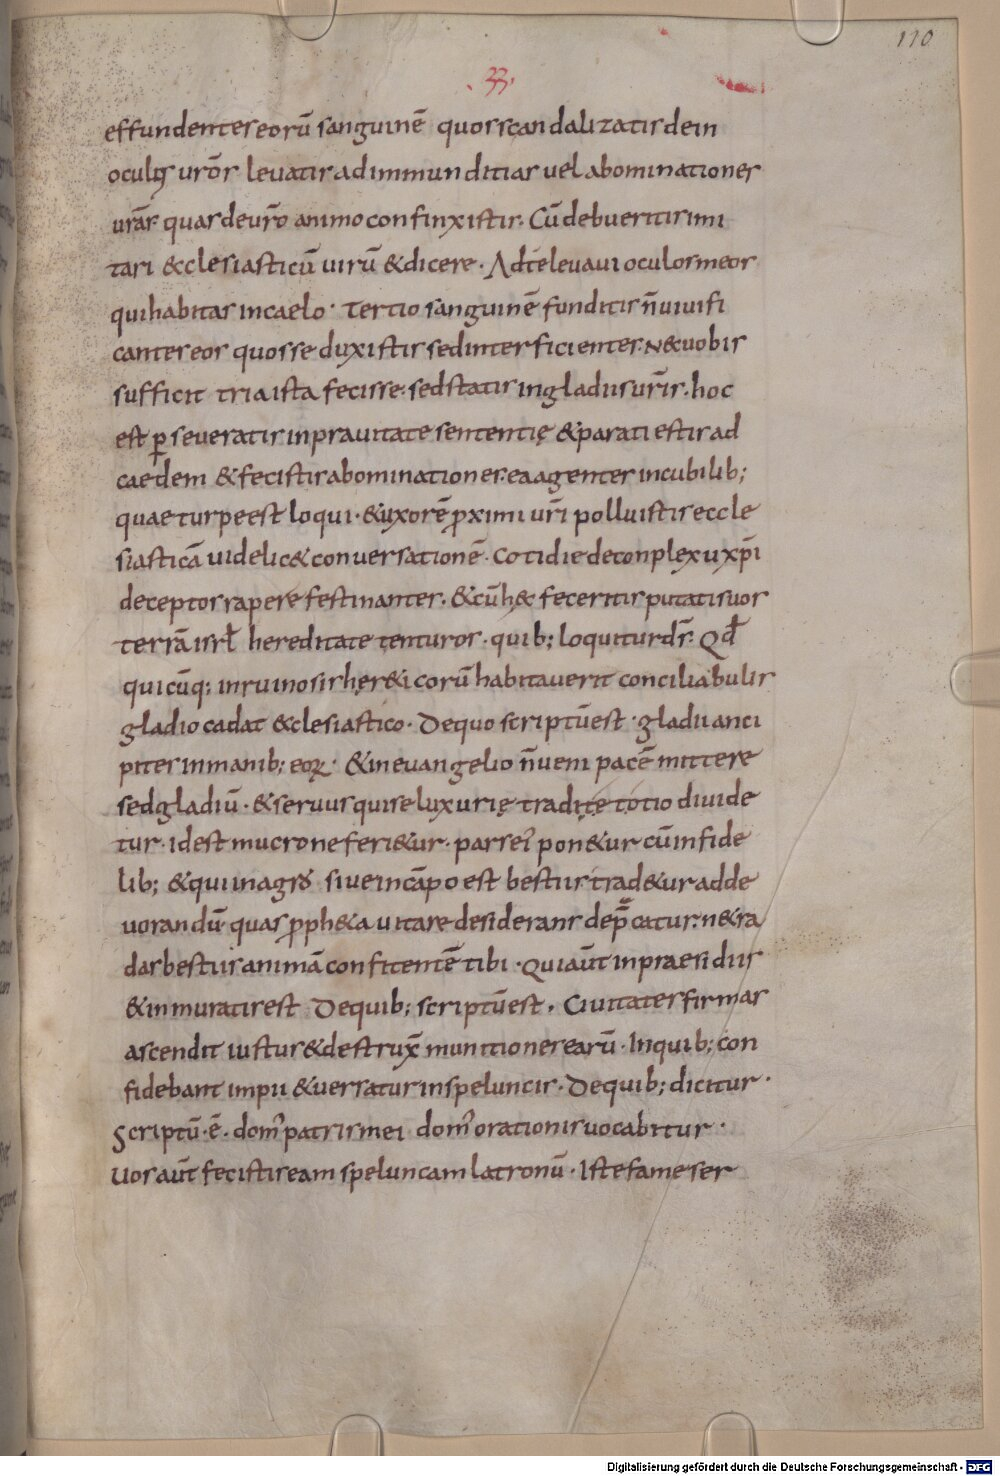 110
33
effundentes eorū sanguinē quos scandalizatis dein
oculis urōs levatis ad immunditias vel abominationes
urās quas de urō animo confinxistis. Cū debueritis imi
tari ecclesiasticū uirū & dicere. Ad te levavi oculos meos
qui habitas in caelo. Tertio sanguinē funditis n̄ uiuifi
cantes eos quos seduxistis sed interficientes. N& uobis
sufficit tria ista fecisse. sed statis in gladiis uris̄. hoc
est p̱ severatis in prauitate sententię & parati estis ad
caedem & fecistis abominationes. ea agentes in cubilib;
quae turpe est loqui. & uxorē p̱ximi urī polluistis eccle
siasticā uidelic& conversationē. Cotidie de conplexu xp̄i
deceptos rapere festinantes. & cū hęc feceritis putatis uos
terrā isrl̄ hereditate tenturos. quib; loquitur dn̄s. Qd̄
quicūq; in ruinosis her&icorū habitaverit conciliabulis
gladio cadat ecclesiastico. De quo scriptū est. gladii anci
pites in manib; eoꝝ. & in evangelio n̄ veni pacē mittere
sed gladiū. & servus qui se luxurię tradit et otio divide
tur. id est mucrone feri&ur. pars ei' pon&ur cū infide
lib; & qui in agro sive in cāpo est bestiis trad&ur adde
vorandū quas p̱ph&a vitare desiderans dep̄catur. ne tra
das bestiis animā confitentē tibi. Qui aūt in praesidiis
& in muratis est. De quib; scriptū est. Civitates firmas
ascendit iustus & destrux̄ munitiones earū. In quib; con
fidebant impii & versatur in speluncis. De quib; dicitur.
Scriptū ē. dom' patris mei dom' orationis vocabitur.
Vos aūt fecistis eam speluncam latronū. Iste fames er
Digitalisierung gefördert durch die Deutsche Forschungsgemeinschaft - DFG